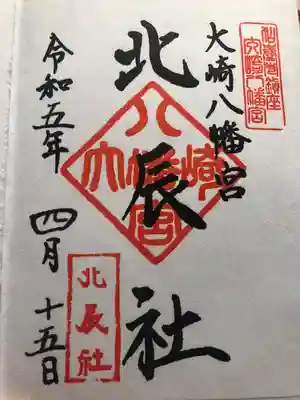 大崎八幡宮
仙臺总鎮座
大崎八幡宮
北辰社
大崎八幡宮
北辰社
令和五年
四月十五日